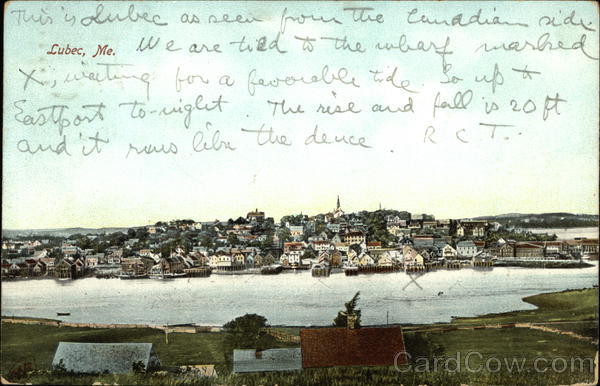 This is Lubec as seen from the Canadian side.
Lubec, Me.
We are tied to the wharf marked
x, waiting for a favorable tide to
Eastport to-night. The rise and fall is 20 ft
and it runs like the deuce. R C T.
x
CardCow.com